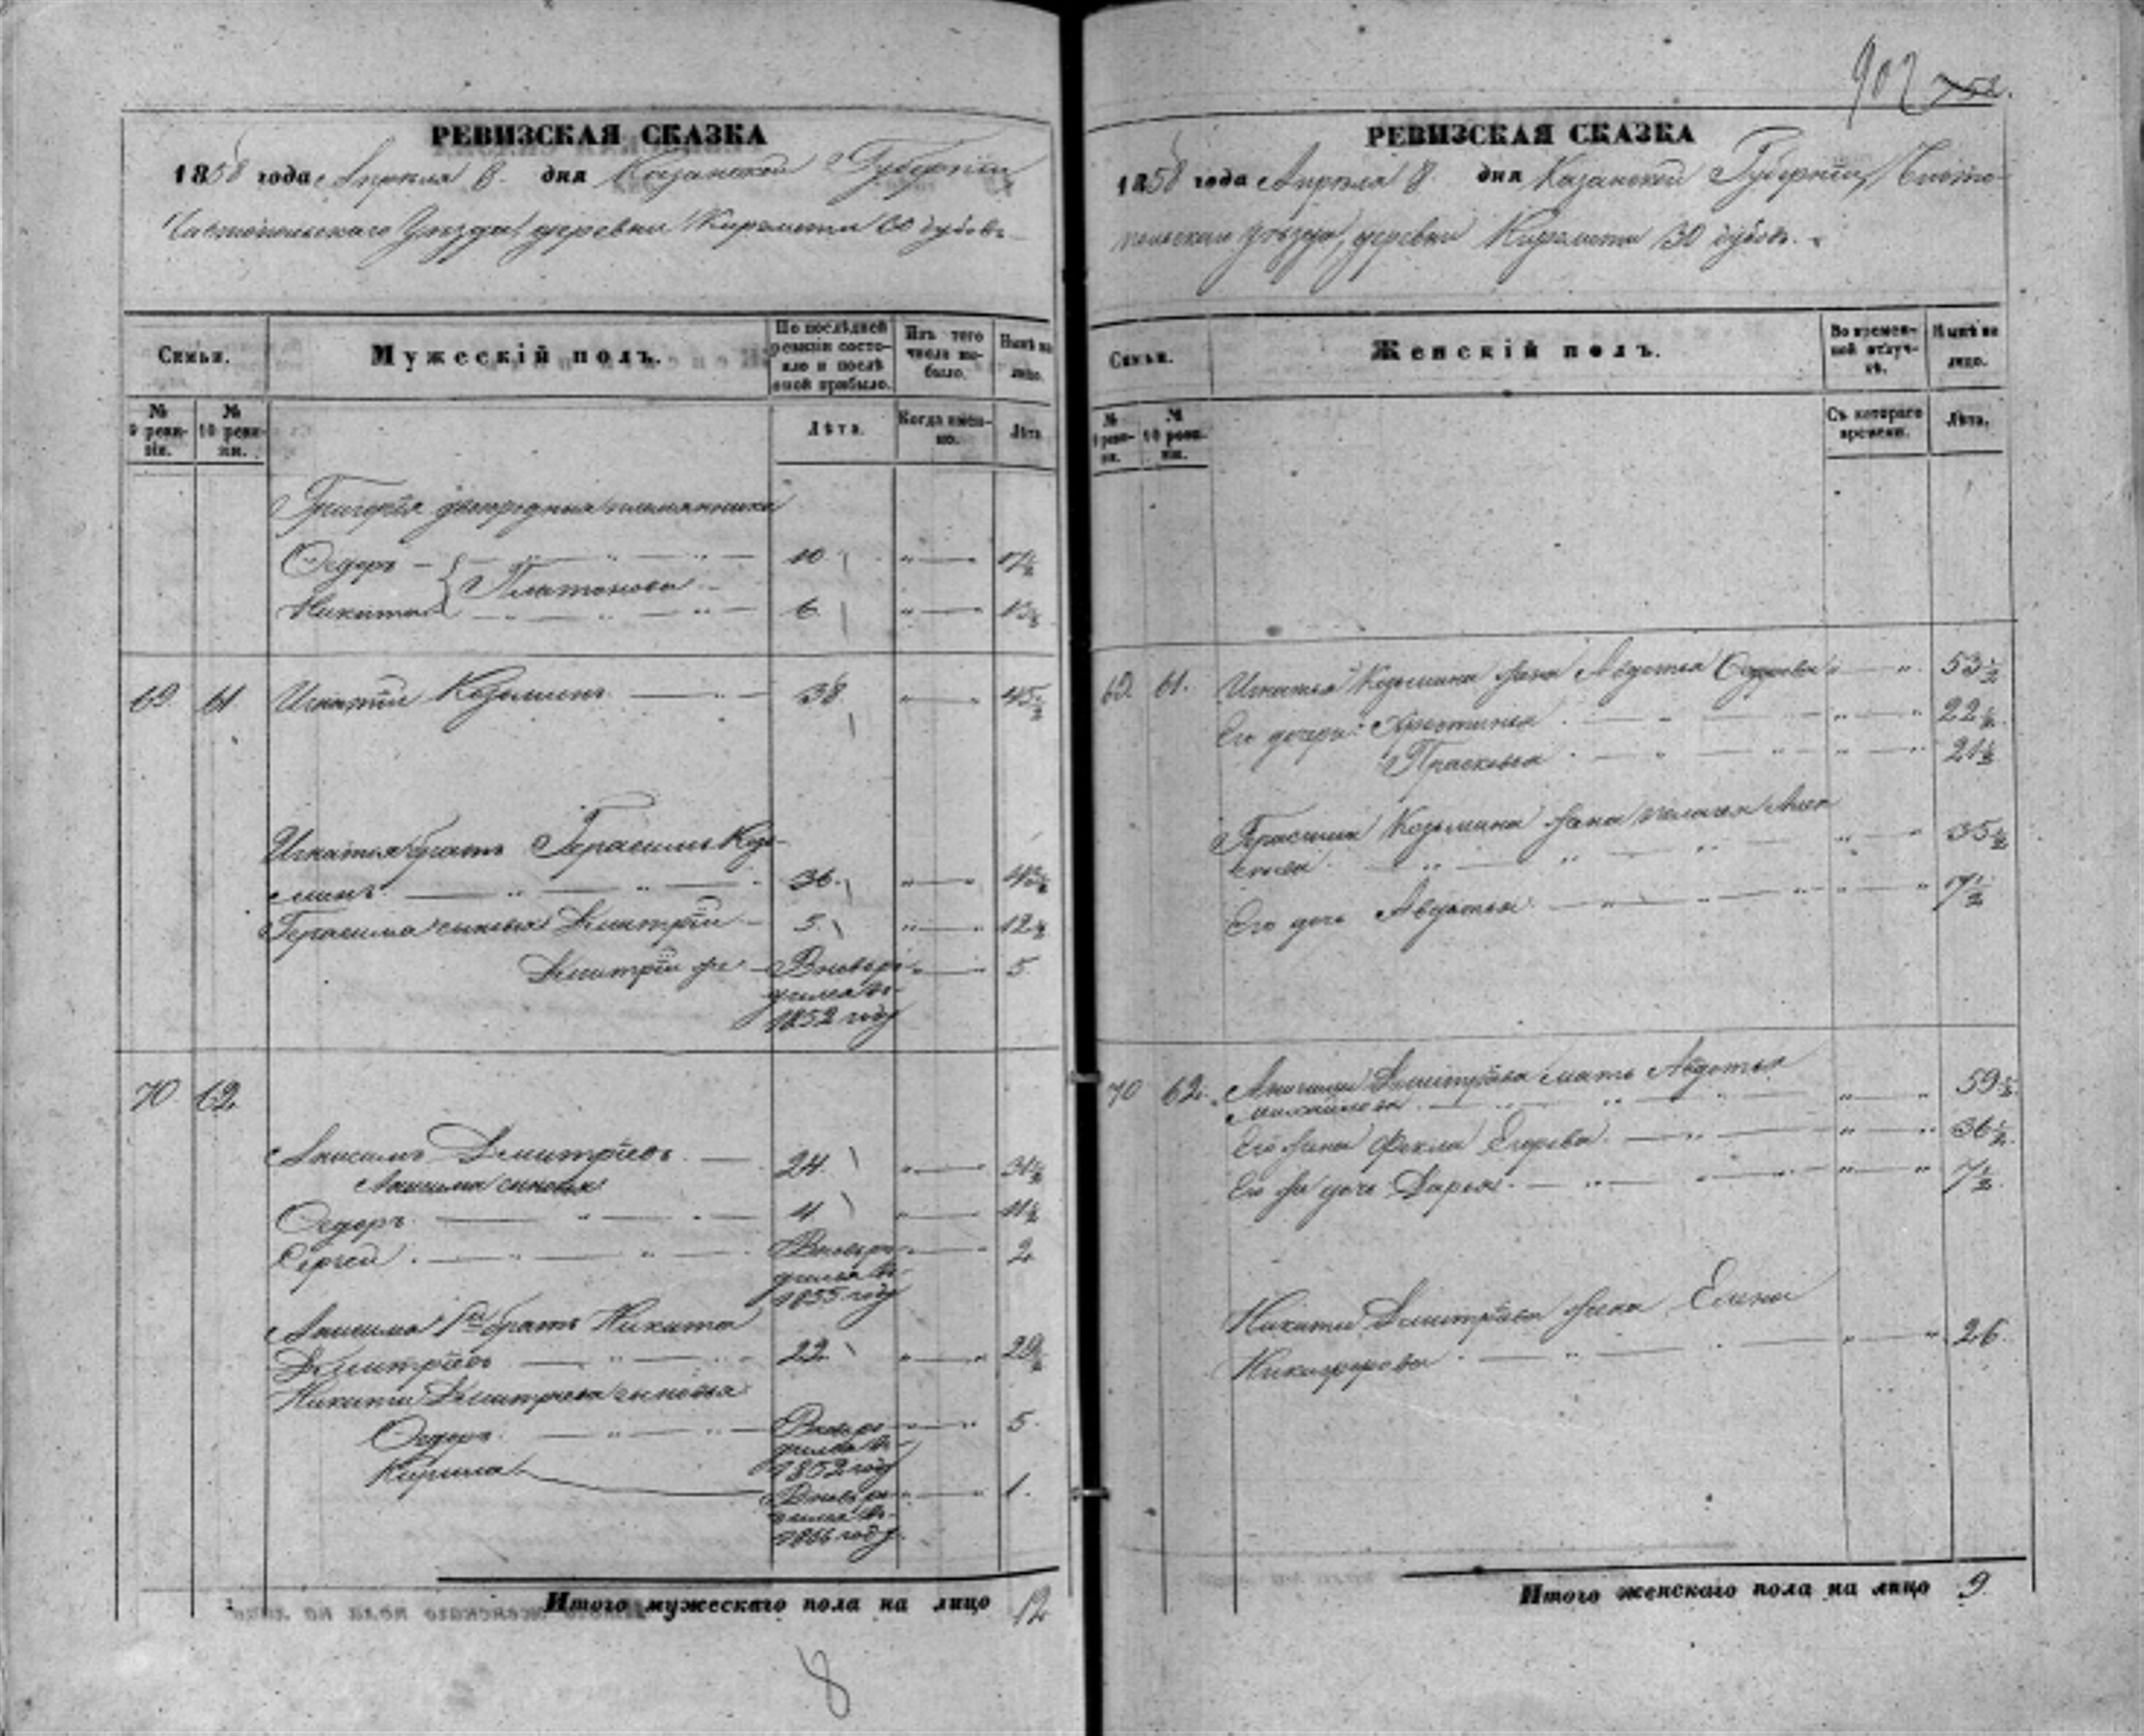 РЕВИЗСКАЯ СКАЗКА
1858 года Апреля 8. дня Казанской Губернии
Чистопольскаго Уезда деревни Киремети 30 дубовъ
Семьи.
Мужескій полъ.
По последней ревизіи состояло и после оной прибыло.
Изъ того числа выбыло.
Ныне на лицо.
№ 9 ревизіи.
№ 10 ревизіи.
Лѣта.
Когда именно.
Лѣта
Григорья двоюродныя племянники
Федоръ 10 17½
Платоновы
Никита 6 13½
69 61 Игнатій Козьминъ 38 45½
Игнатья братъ Герасимъ Козьминъ 36 43½
Герасима сыновья Дмитрій 5 12½
Дмитрій же Вновь родился въ 1852 году 5
70 62
Анисимъ Дмитріевъ 24 31½
Анисима сыновья
Федоръ 4 11½
Сергей Вновь родился въ 1855 году 2
Анисима 1й братъ Никита
Дмитріевъ 22 29½
Никиты Дмитріева сыновья
Федоръ Вновь родился въ 1852 году 5
Кирила Вновь родился въ 1856 году 1
Итого мужескаго пола на лицо 12
8
902 752.
РЕВИЗСКАЯ СКАЗКА
1858 года Апреля 8. дня Казанской Губерніи, Чисто-
польскаго уезда, деревни Киремети 30 дубовъ.
Семьи.
Женскій полъ.
Во временной отлучкѣ.
Ныне на лицо.
№ 9 ревизіи.
№ 10 ревизіи.
Съ котораго времени.
Лѣта.
69. 61. Игнатья Козьмина жена Авдотья 53½
Его дочери: Христинья 22½
Прасковья 21½
Герасима Козьмина жена Пелагея Алек-
сеева 35½
Его дочь Авдотья 17½
70 62. Анисима Дмитріева мать Авдотья
Михайлова 59½
Его жена Фекла Егорова 36½
Его же дочь Дарья 7½
Никиты Дмитріева жена Елена
Никифорова 26
Итого женскаго пола на лицо 9